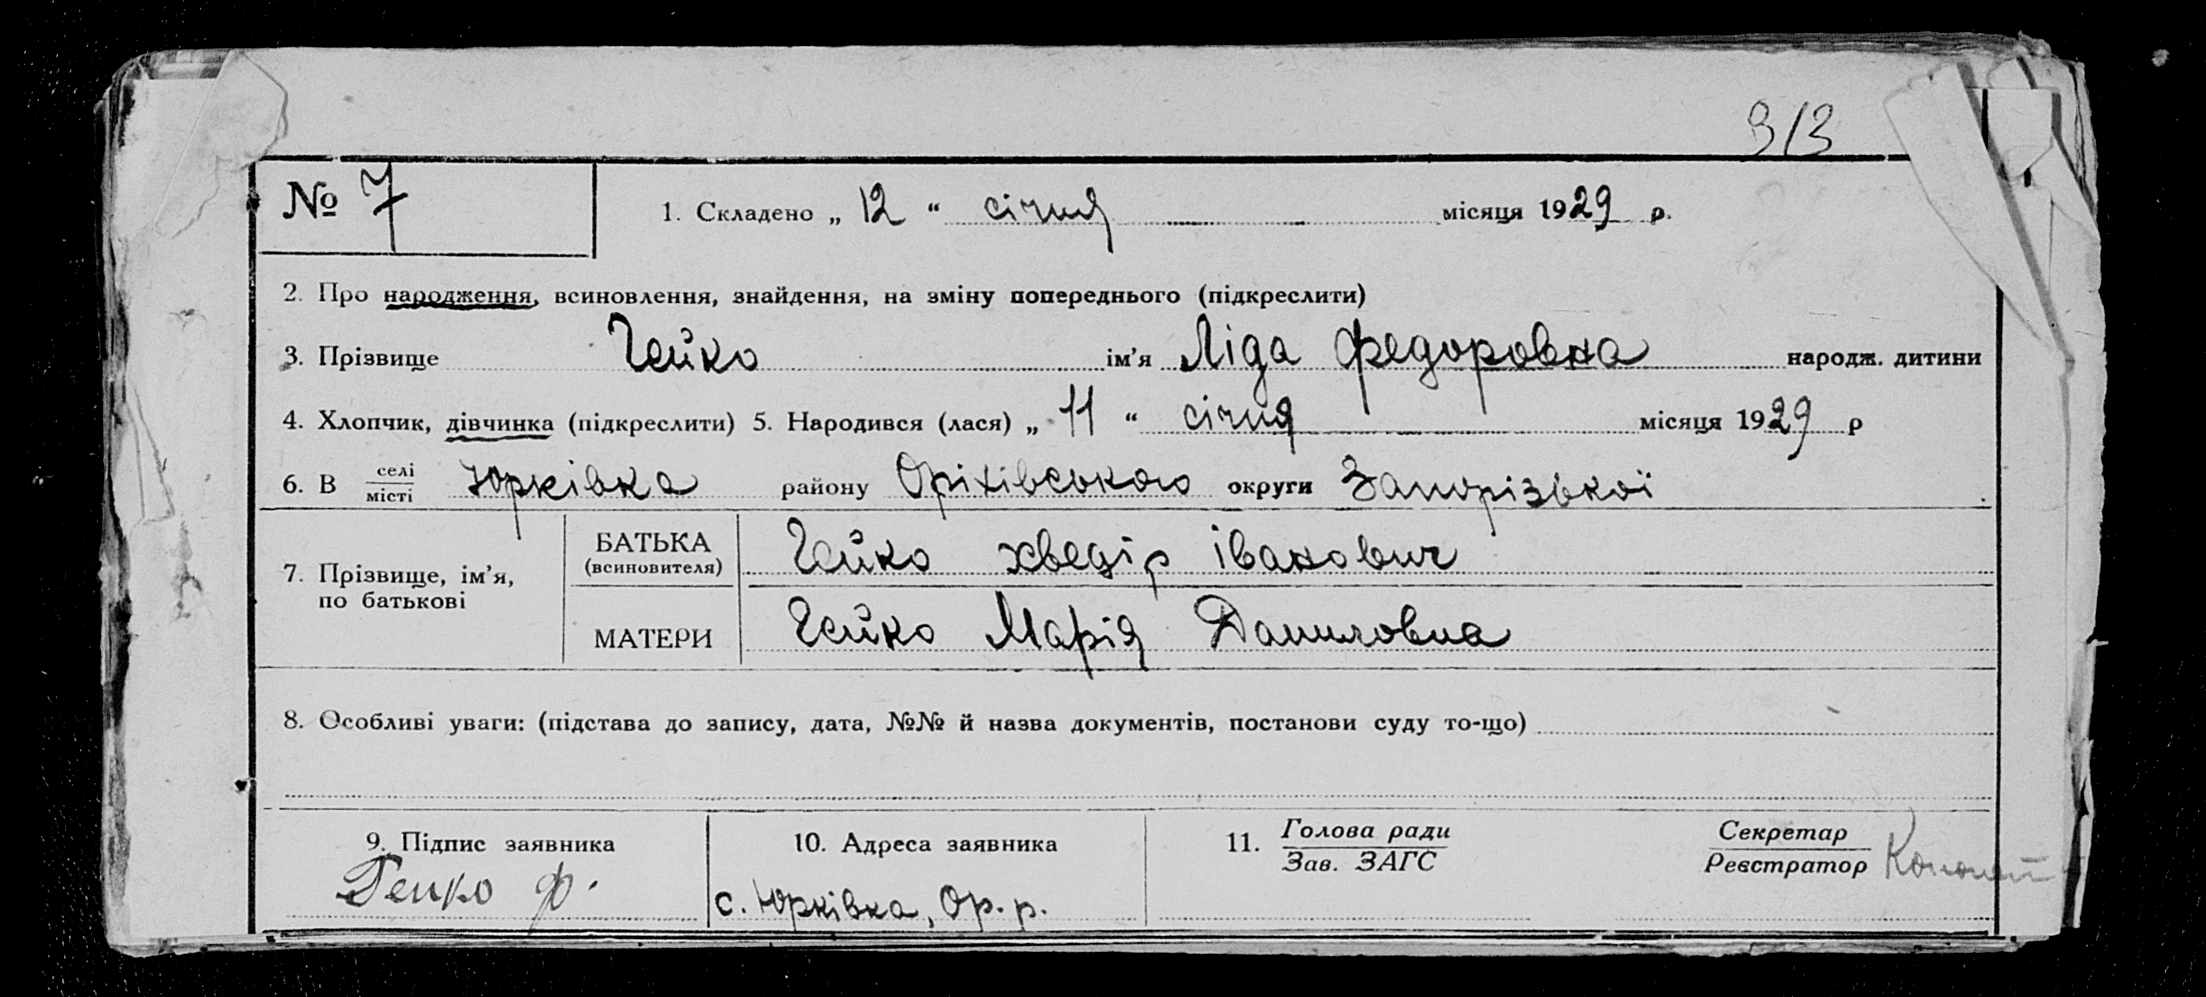 313
№ 7
1. Складено „ 12 “ січня місяця 1929 р.
2. Про народження, всиновлення, знайдення, на зміну попереднього (підкреслити)
3. Прізвище Гейко ім’я Ліда Федоровна народж. дитини
4. Хлопчик, дівчинка (підкреслити) 5. Народився (лася) „ 11 “ січня місяця 1929 р
6. В селі місті Юрківка району Оріхівського округи Запорізької
7. Прізвище, ім’я, по батькові
БАТЬКА (всиновителя) Гейко Хведір Іванович
МАТЕРИ Гейко Марія Даниловна
8. Особливі уваги: (підстава до запису, дата, №№ й назва документів, постанови суду то-що)
9. Підпис заявника
Гейко Ф.
10. Адреса заявника
с. Юрківка, Ор. р.
11. Голова ради
Зав. ЗАГС
Секретар
Реєстратор